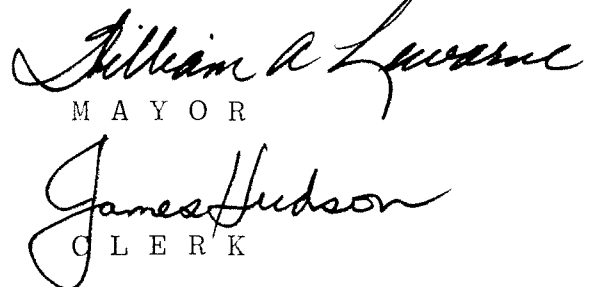 William A Lewarne
MAYOR
James Hudson
CLERK